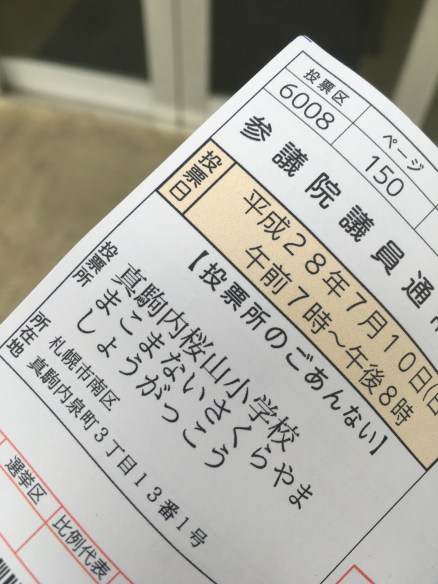 投票区
ページ
6008
150
参議院議員通
投票日
平成28年7月10日(日
午前7時～午後8時
【投票所のごあんない】
投票所
真駒内桜山小学校
まこまないさくらやま
しょうがっこう
所在地
札幌市南区
真駒内泉町3丁目13番1号
選挙区
比例代表